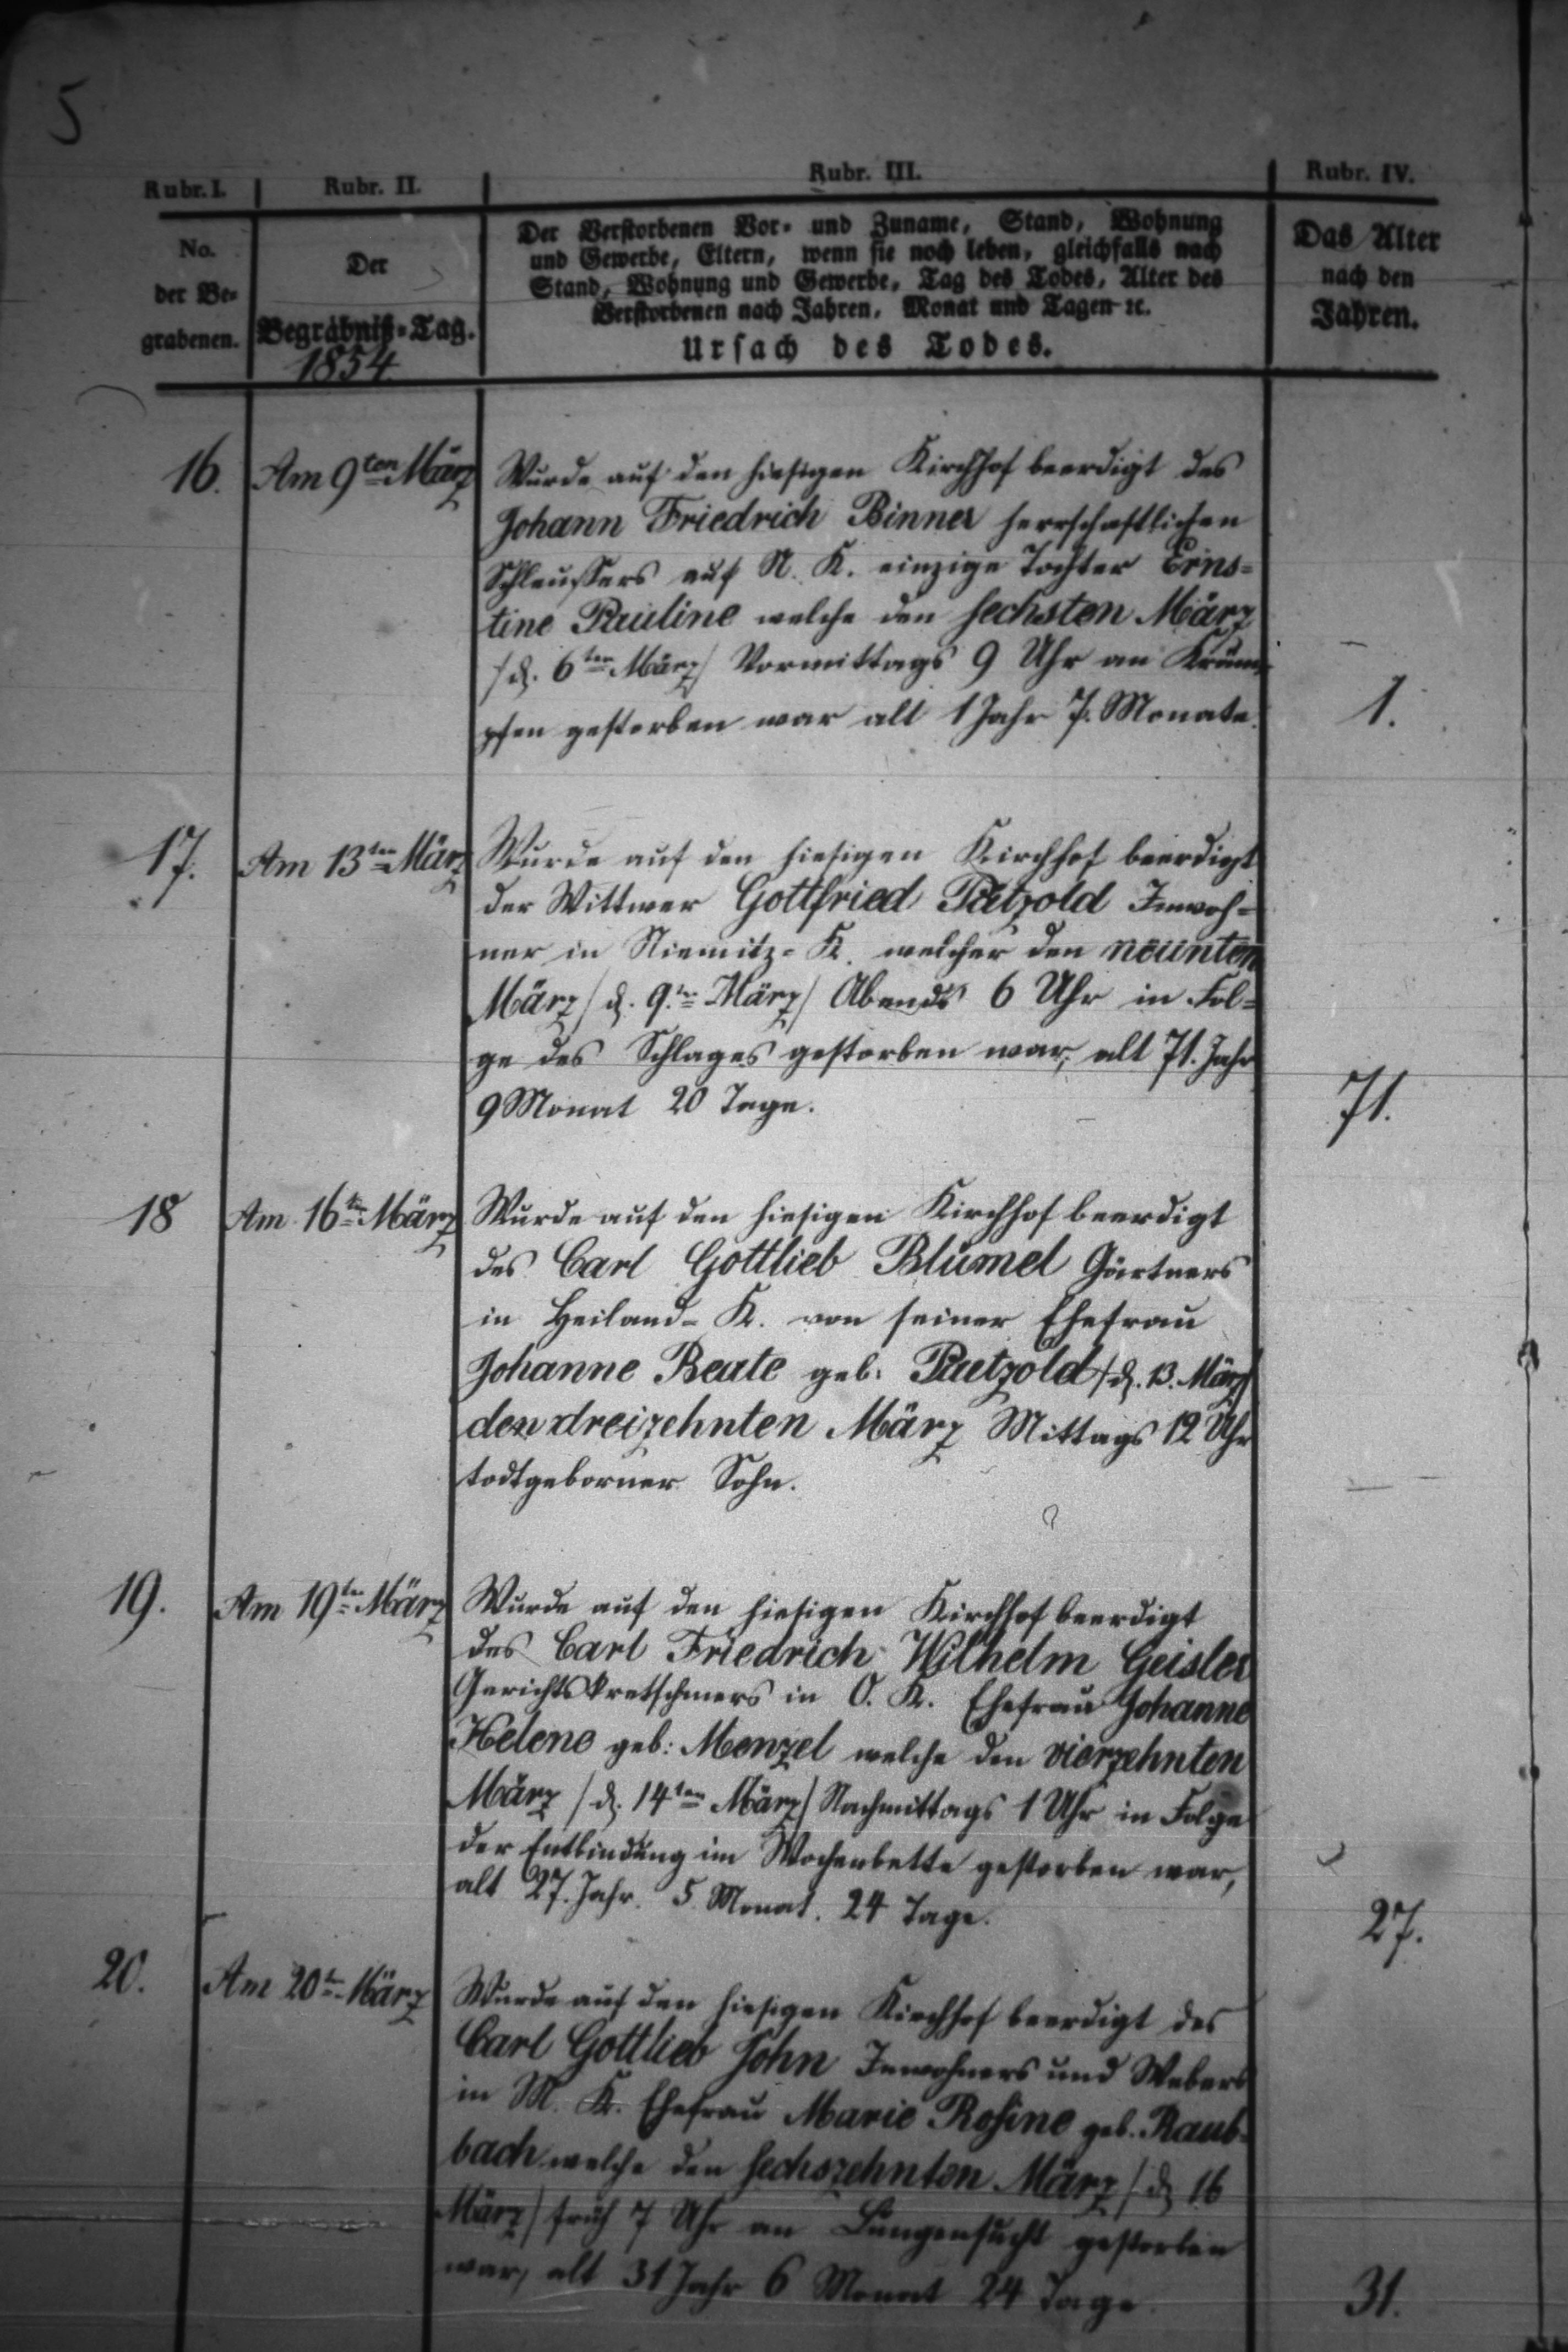 5
Rubr. I. Rubr. II. Rubr. III. Rubr. IV.
No.
der Be-
grabenen.
Der
Begräbniß-Tag.
1854.
Der Verstorbenen Vor- und Zuname, Stand, Wohnung
und Gewerbe, Eltern, wenn sie noch leben, gleichfalls nach
Stand, Wohnung und Gewerbe, Tag des Todes, Alter des
Verstorbenen nach Jahren, Monat und Tagen ꝛc.
Ursach des Todes.
Das Alter
nach den
Jahren.
16. Am 9ten März Wurde auf den hiesigen Kirchhof beerdigt des
Johann Friedrich Binner herrschaftlichen
Schleußers auf N. K. einzige Tochter Erns=
tine Pauline welche den sechsten März
/d. 6ten März/ Vormittags 9 Uhr an Kräm=
pfen gestorben war alt 1 Jahr 7. Monate. 1.
17. Am 13ten März Wurde auf den hiesigen Kirchhof beerdigt
der Wittwer Gottfried Pätzold Inwoh=
ner in Niemitz=K. welcher den neunten
März /d. 9.ten März/ Abends 6 Uhr in Fol=
ge des Schlages gestorben war, alt 71. Jahr
9 Monat 20 Tage. 71.
18 Am 16ten März Wurde auf den hiesigen Kirchhof beerdigt
des Carl Gottlieb Blümel Gärtners
in Heiland=K. von seiner Ehefrau
Johanne Beate geb: Paetzold /d. 13. März/
den dreizehnten März Mittags 12 Uhr
todtgeborner Sohn. —
19. Am 19ten März Wurde auf den hiesigen Kirchhof beerdigt
des Carl Friedrich Wilhelm Geisler
Gerichtskretschmers in O. K. Ehefrau Johanne
Helene geb: Menzel welche den vierzehnten
März /d. 14ten März/ Nachmittags 1 Uhr in Folge
der Entbindung im Wochenbette gestorben war,
alt 27. Jahr. 5 Monat. 24 Tage. 27.
20. Am 20ten März Wurde auf den hiesigen Kirchhof beerdigt des
Carl Gottlieb John Inwohners und Webers
in M. K. Ehefrau Marie Rosine geb. Raub=
bach welche den sechszehnten März /d. 16
März/ früh 7 Uhr an Lungensucht gestorben
war, alt 31 Jahr 6 Monat 24 Tage. 31.